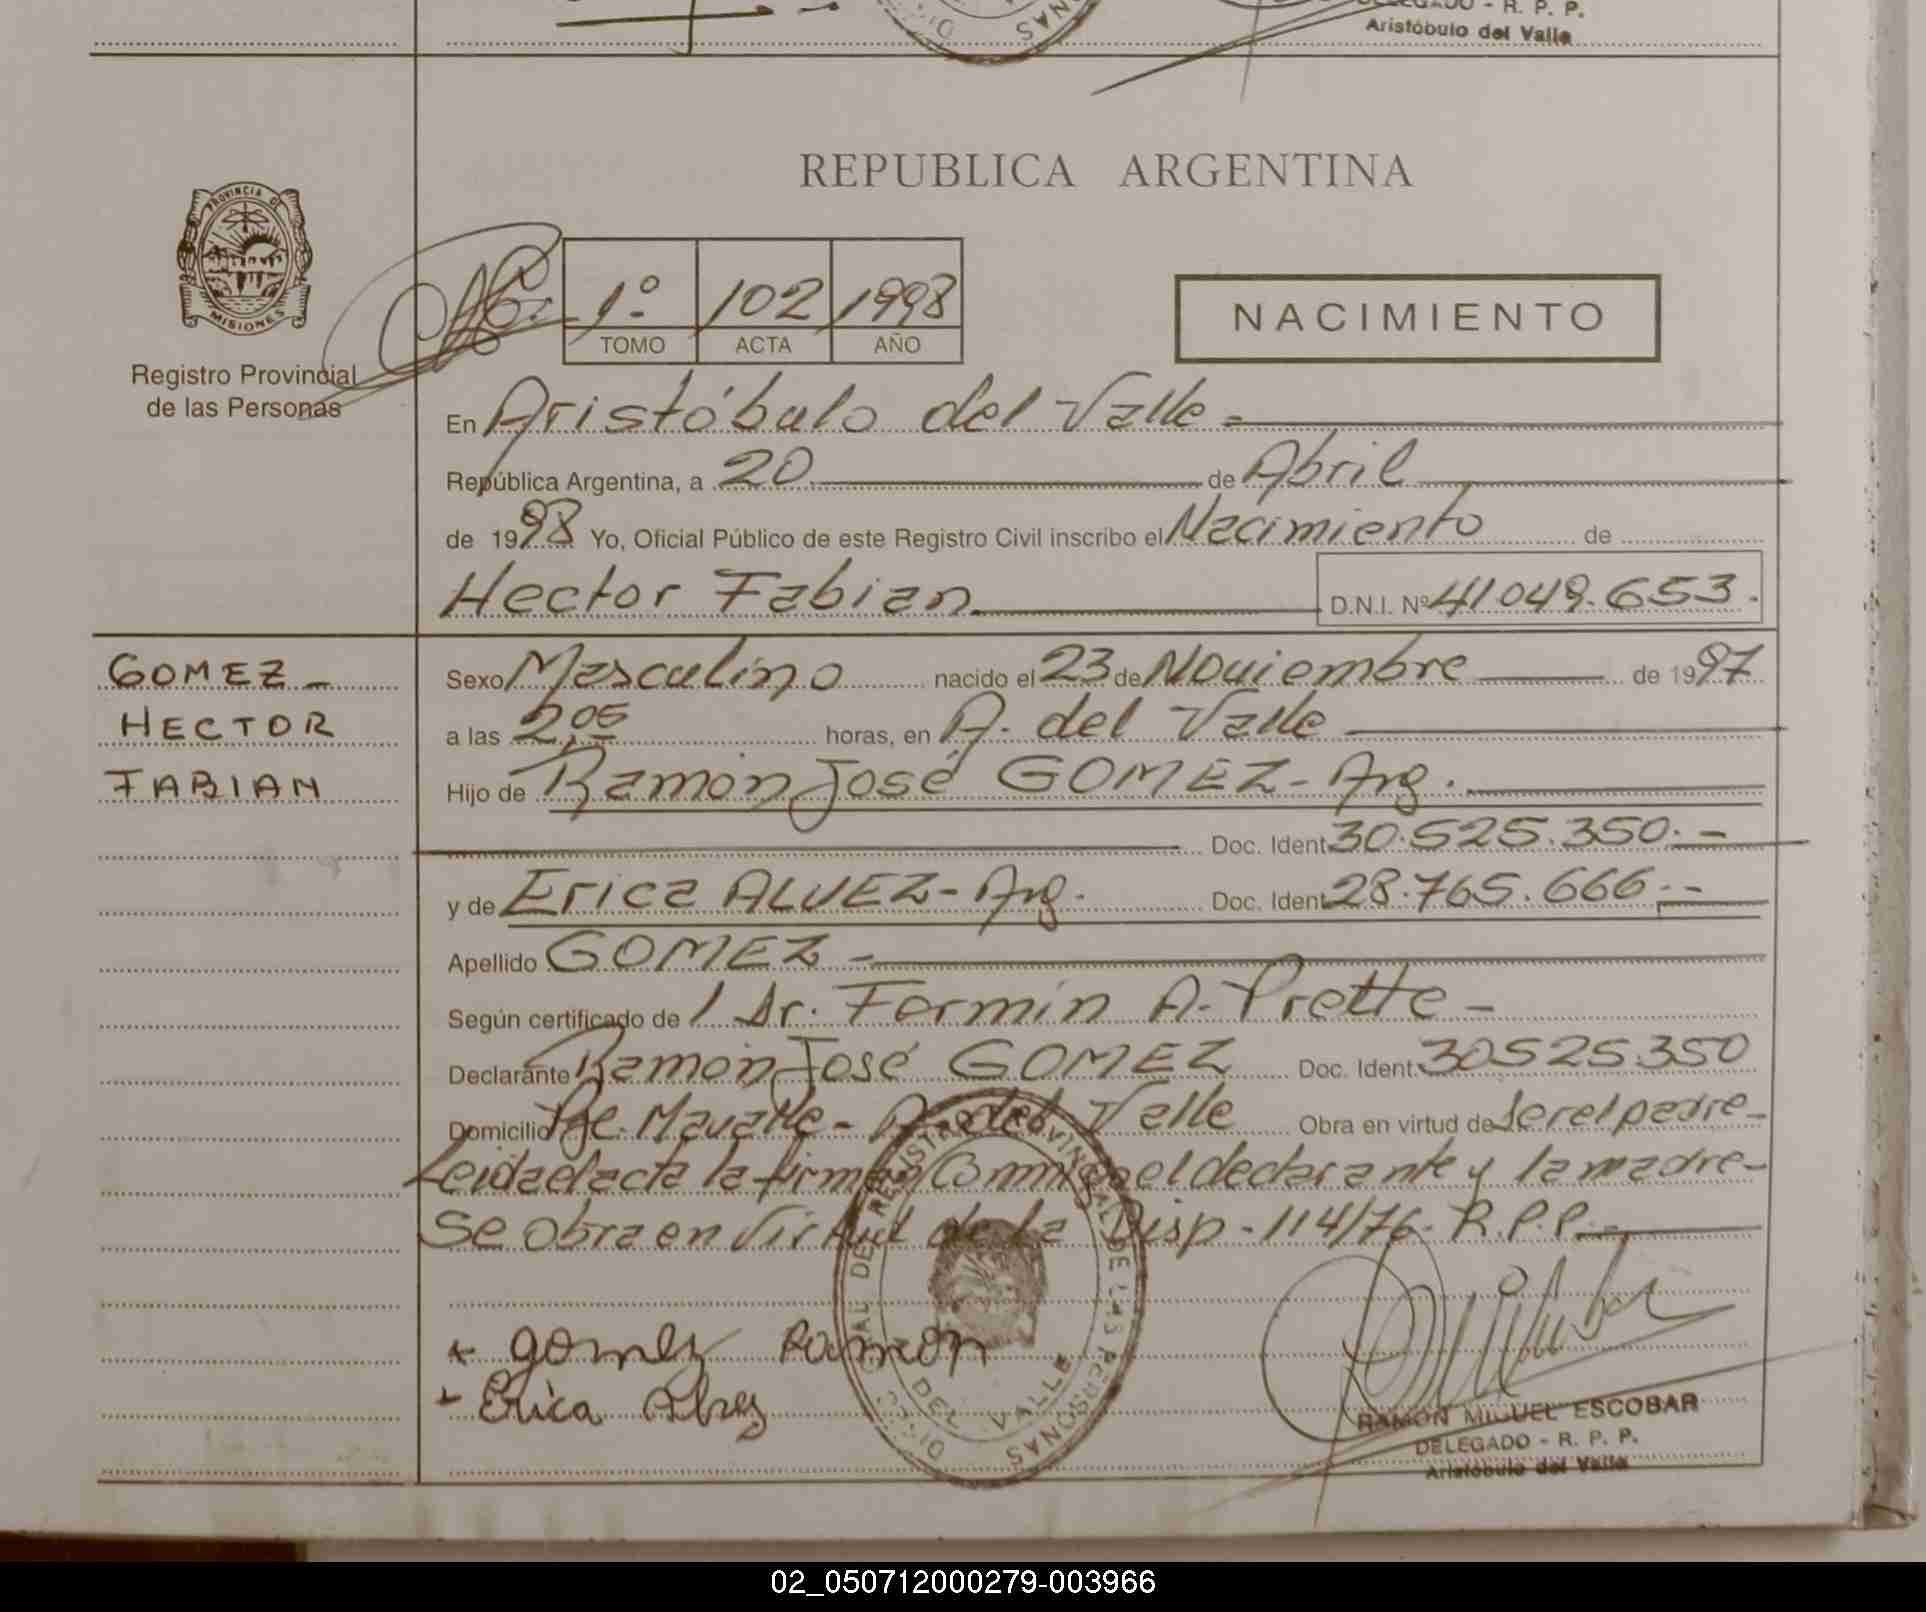 DELEGADO - R. P. P.
Aristóbulo del Valle
REPUBLICA ARGENTINA
PROVINCIA DE
MISIONES
Registro Provincial
de las Personas
1º 102 1998
TOMO ACTA AÑO
NACIMIENTO
En Aristóbulo del Valle
República Argentina, a 20 de Abril
de 1998 Yo, Oficial Público de este Registro Civil inscribo el Nacimiento de
Hector Fabian D.N.I. Nº 41049.653.
GOMEZ -
HECTOR
FABIAN
Sexo Masculino nacido el 23 de Noviembre de 1997
a las 2,05 horas, en A. del Valle
Hijo de Ramón José GOMEZ - Arg.
Doc. Ident 30.525.350.-
y de Erica ALVEZ - Arg. Doc. Ident 28.765.666.-
Apellido GOMEZ -
Según certificado de 1 Dr. Fermin A. Prette -
Declarante Ramón José GOMEZ Doc. Ident 30525350
Domicilio Pje. - A. del Valle Obra en virtud de ser el padre -
Leida el acta la firman Conmigo el declarante y la madre -
Se obra en Virtud de la Disp - 114/76 - R.P.P. -
+ gomez Ramon
+ Erica Alvez
DEL VALLE
RAMON MIGUEL ESCOBAR
DELEGADO - R. P. P.
Aristóbulo del Valle
02_050712000279-003966